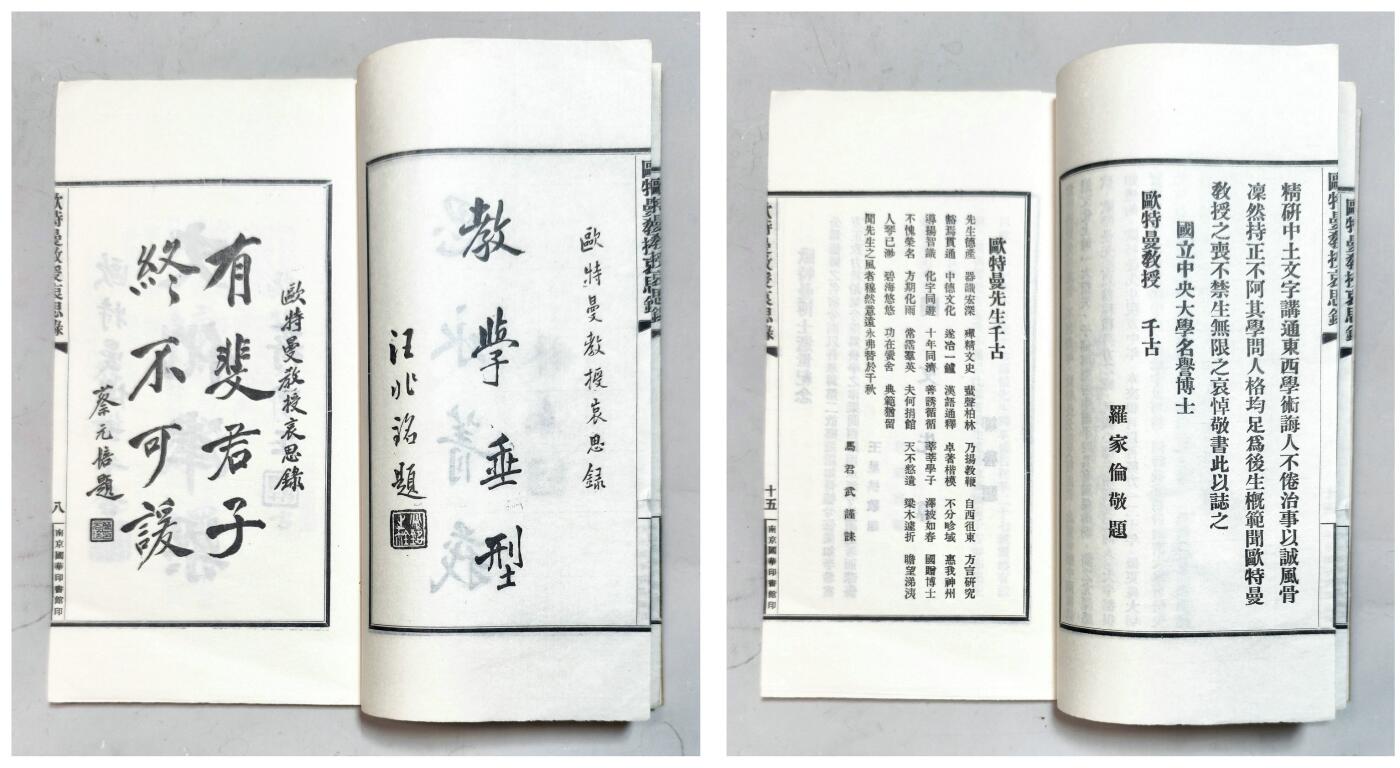 歐特曼教授哀思錄
歐特曼教授哀思录
教學垂型
汪兆銘題
歐特曼教授哀思錄
有斐君子
終不可諼
蔡元培題
歐特曼教授哀思錄
八
南京國華印書館印
歐特曼教授哀思錄
歐特曼教授哀思錄
精研中土文字講通東西學術誨人不倦治事以誠風骨
凜然持正不阿其學問人格均足爲後生概範聞歐特曼
教授之喪不禁生無限之哀悼敬書此以誌之
國立中央大學名譽博士
歐特曼教授 千古
羅家倫敬題
歐特曼先生千古
先生德產 器識宏深 殫精文史 蜚聲柏林 乃揚教鞭 自西徂東 方言研究
豁焉貫通 中德文化 遂冶一鑪 漢語通釋 卓著楷模 不分畛域 惠我神州
導揚智識 化宇同遊 十年同濟 善誘循循 莘莘學子 澤被如春 國贈博士
不愧榮名 方期化雨 常霑羣英 夫何捐館 天不憗遺 梁木遽折 瞻望涕洟
人琴已渺 碧海悠悠 功在黌舍 典範猶留
聞先生之風者穆然意遠永弗替於千秋
馬君武謹誄
歐特曼教授哀思錄
十五
南京國華印書館印